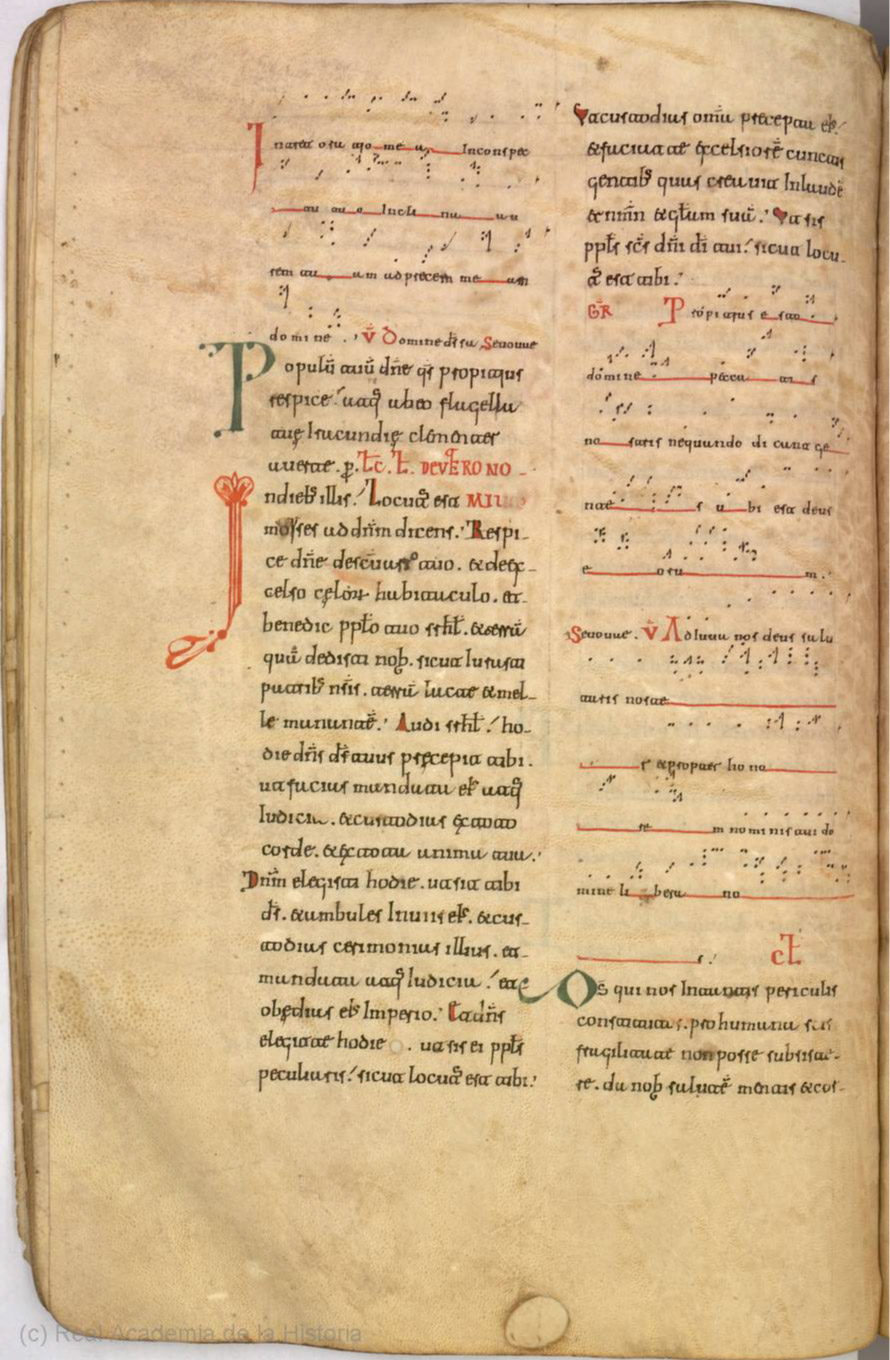 Intret oratio me a Inconspec
tu tu o Incli na au
rem tu am ad precem me am
domine. V Domine ds sa Seuouae
Populū tuū dn̄e qs̄ propitius
respice. atq ab eo flagella
tuę Iracundię clementer
auerte. p. Lc. L. DEUTERONO
In dieb illis. Locutꝰ est MII
moyses ad dn̄m dicens. Respi-
ce dn̄e de scuario tuo. & de ex-
celso cęlorꝝ habitaculo. et
benedic pplo tuo srhl. & terrā
quā dedisti nob. sicut Iurasti
patrib nr̄is. terrā lacte & mel-
le manantē. Audi srhl. ho-
die dn̄s ds tuus pręcepit tibi.
ut facias mandata ei atq
Iudicia. & custodias ex toto
corde. & ex tota anima tua.
Dnm̄ elegisti hodie. ut sit tibi
ds. & ambules In uiis ei. & cus-
todias cerimonias illius. et
mandata atq Iudicia. et
obędias ei Imperio. Et dn̄s
elegit te hodie. ut sis ei ppls
peculiaris. sicut locutꝰ est tibi.
Vt custodias omīa precepta ei.
& faciat te excelsiorē cunctis
gentib quas creauit In laudē
& nom̄ & glam suā. Vt sis
ppls scs dn̄i di tui. sicut locu-
tꝰ est tibi.
GR Propitius esto
domine pecca tis
no stris nequando dicant ge
ntes u bi est deus
e oru m.
Seuouae. V Adiuua nos deus salu
taris noste
r & propter hono
re m nominis tui do
mine li bera no
s. CL
Ds̄ qui nos In tantis periculis
constitutos. pro humana scis
fragilitate non posse subsiste-
re. da nob salutē mentis & cor-
(c) Real Academia de la Historia